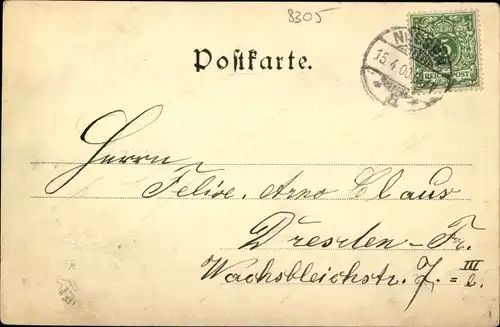 8305
Postkarte.
15.4.00
REICHSPOST
Herrn
Felix, Arno Claus
Dresden-Fr.
Wachsbleichstr. 7. = III